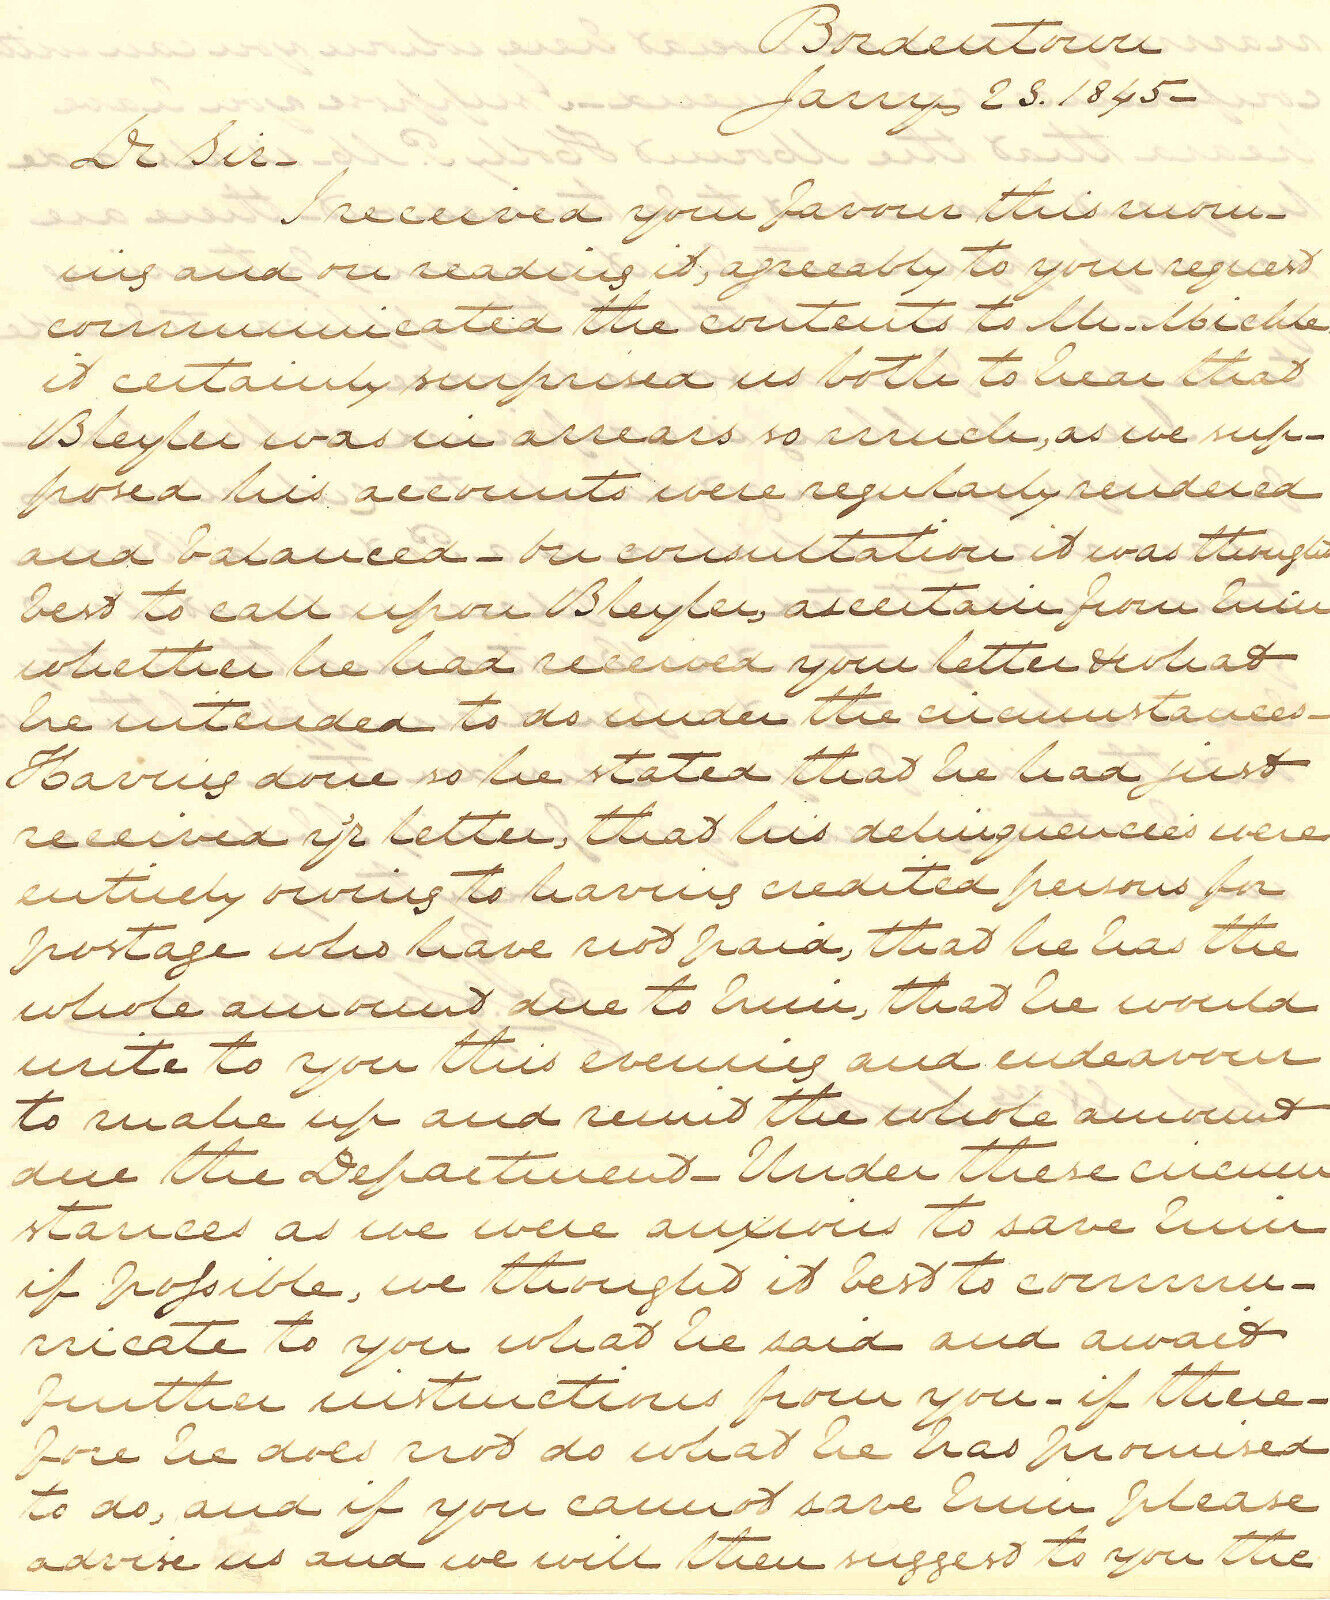 Bordentown
Jany 23. 1845-
Dr Sir-
I received your favour this mor-
ning and on reading it, agreeably to your request
communicated the contents to Mr. Mickle
it certainly surprised us both to hear that
Bleyler was in arrears so much, as we sup-
posed his accounts were regularly rendered
and balanced - on consultation it was thought
best to call upon Bleyler, ascertain from him
whether he had received your letter & what
he intended to do under the circumstances-
Having done so he stated that he had just
received yr letter, that his delinquencies were
entirely owing to having credited persons for
postage who have not paid, that he has the
whole amount due to him, that he would
write to you this evening and endeavour
to make up and remit the whole amount
due the Department - Under these circum
stances as we were anxious to save him
if possible, we thought it best to commu-
nicate to you what he said and await
further instructions from you - if there-
fore he does not do what he has promised
to do, and if you cannot save him please
advise us and we will then suggest to you the